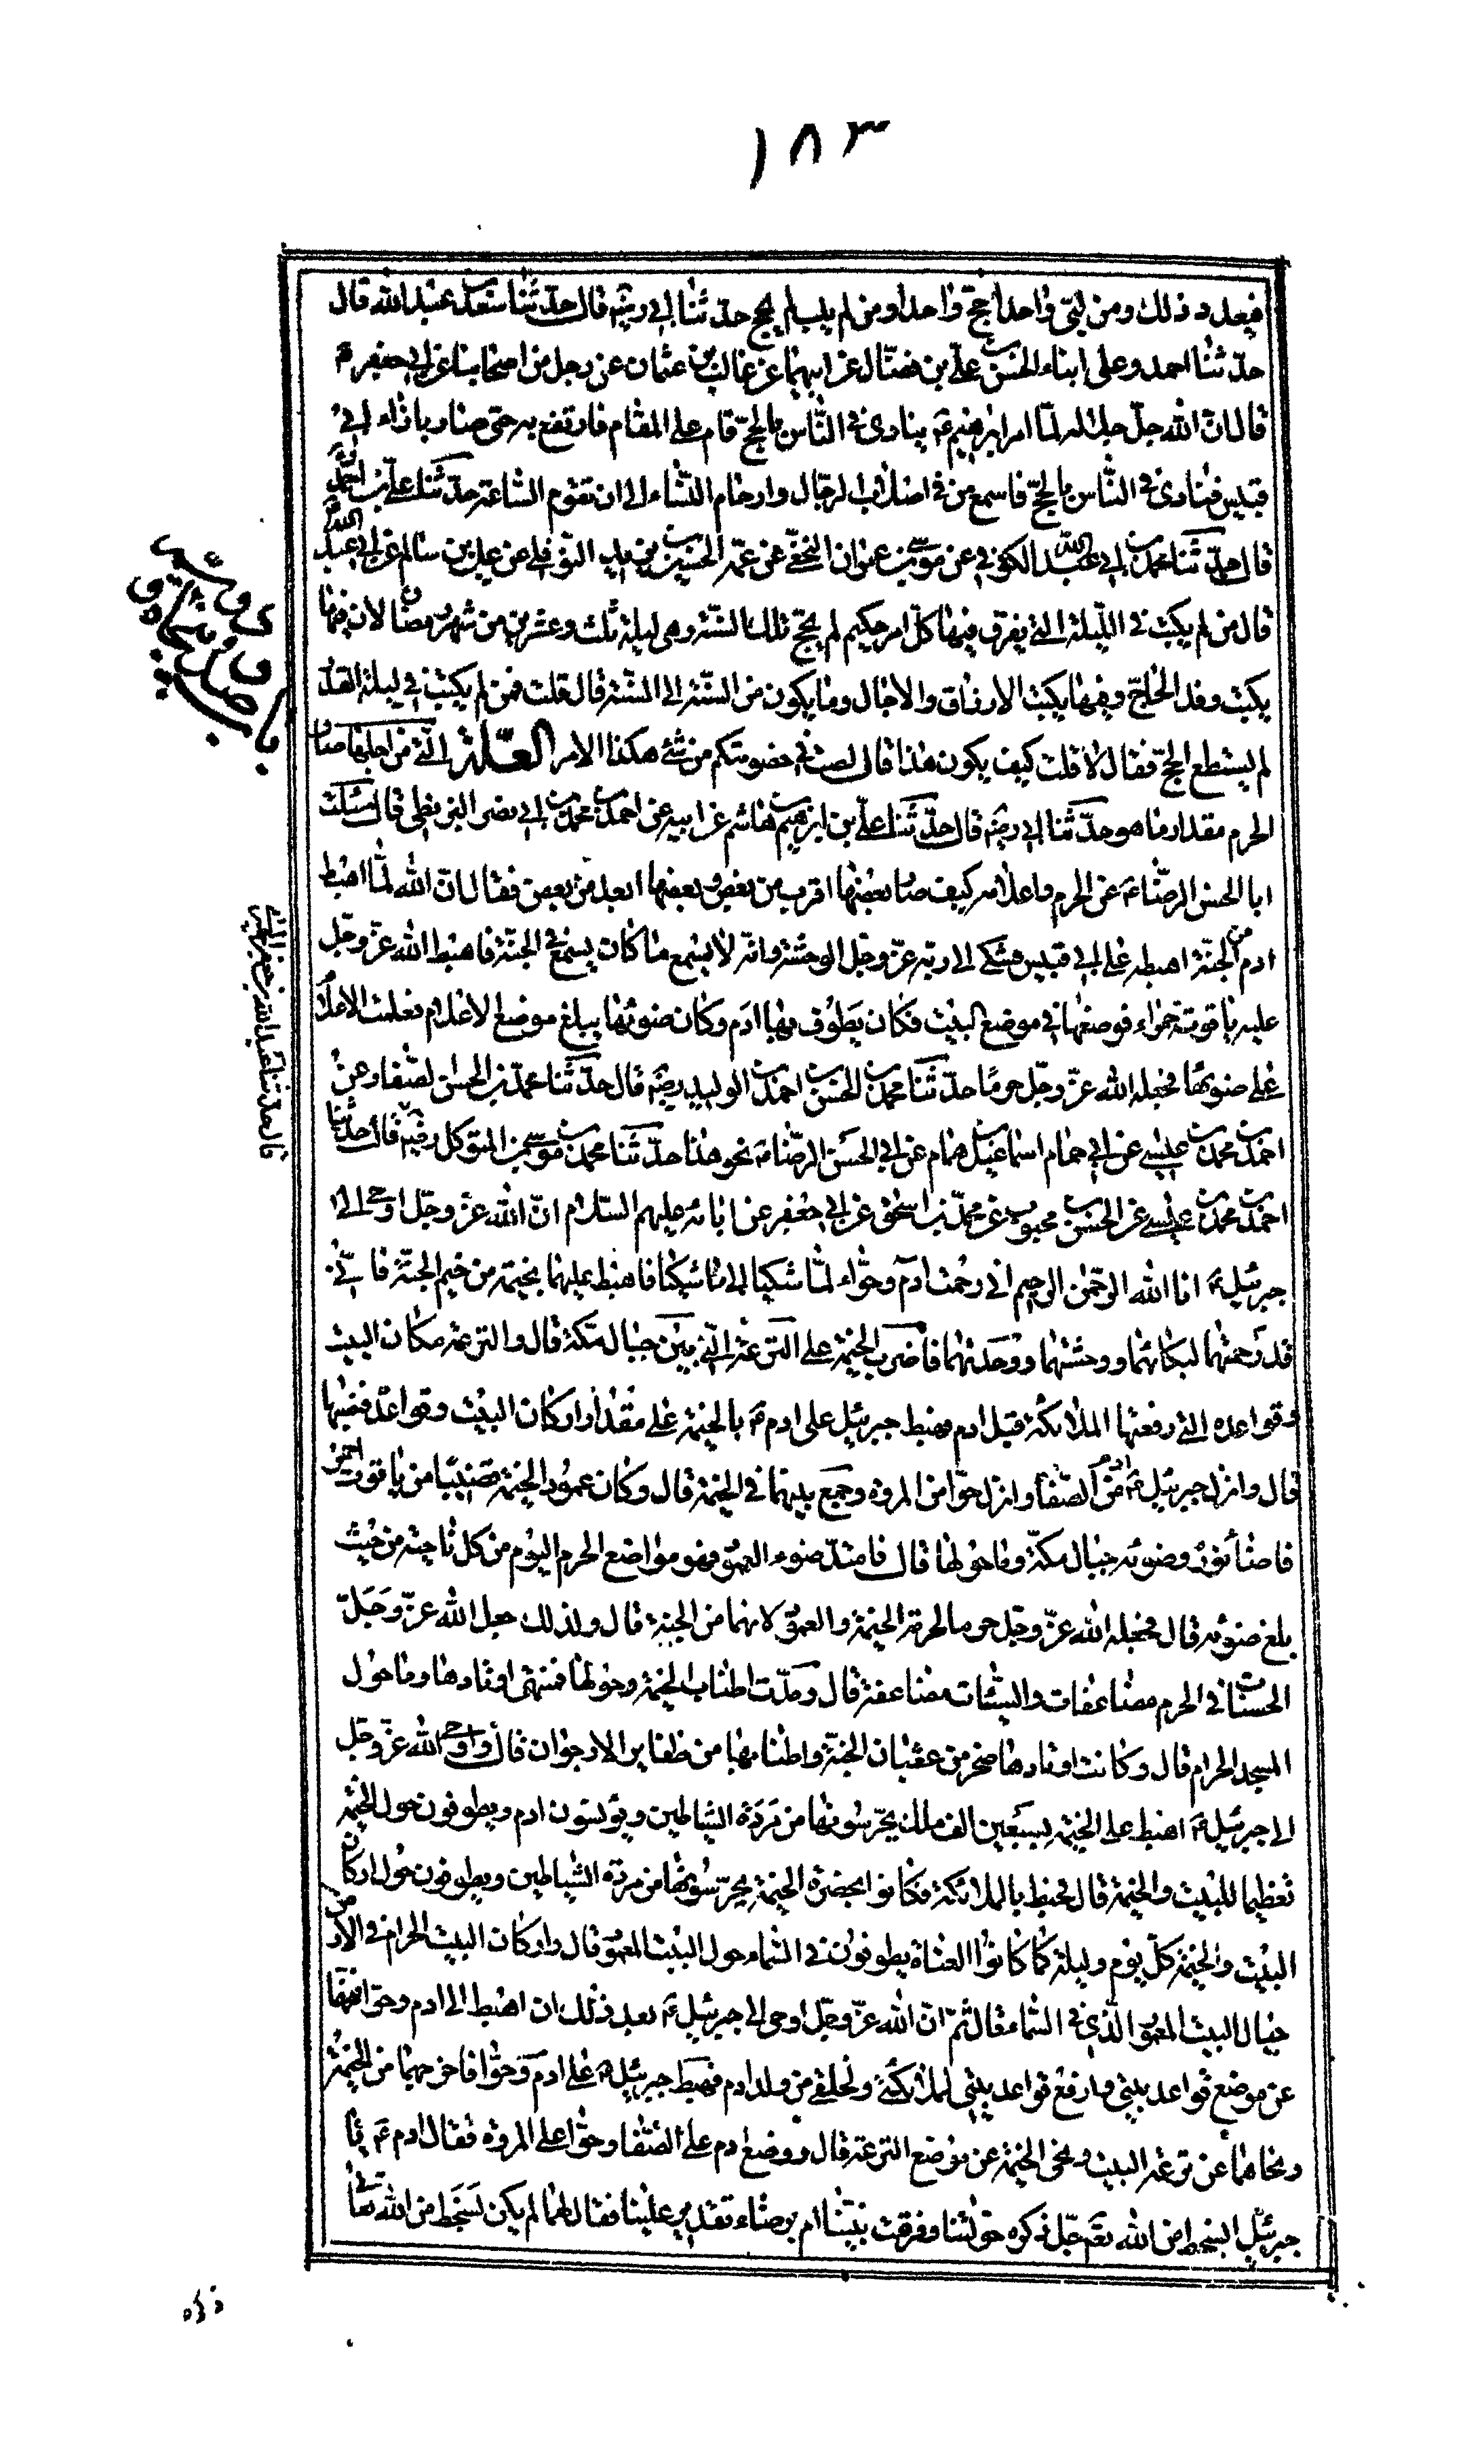 ١٨٣
فبعدد ذلك ومن لبّى واحدا حجّ واحدا ومن لم يلب لم يحج حدثنا ابي رضه قال حدثنا سعد بن عبد الله قال
حدثنا احمد وعلى ابناء الحسن بن علي بن فضال عن ابيهما عن غالب بن عثمان عن رجل من اصحابنا عن ابي جعفر ع
قال ان الله جل جلاله لمّا امر ابرهيم ع ينادى في النّاس بالحجّ قام على المقام فارتفع به حتى صار بازاء ابي
قبيس فنادى في النّاس بالحجّ فاسمع من في اصلاب الرجال وارحام النّساء الى ان تقوم السّاعة حدّثنا علي بن احمد
قال حدّثنا محمد بن ابي عبد الله الكوفي عن موسى بن عمران النخعي عن عمه الحسين بن يزيد النوفلي عن علي بن سالم عن ابي عبد الله
قال من لم يكتب في اللّيلة التي يفرق فيها كلّ امر حكيم لم يحجّ تلك السّنة وهى ليلة ثلث وعشرين من شهر رمضان لان فيها
يكتب وفد الحاجّ وفيها يكتب الارزاق والاجال وما يكون من السّنة الى السّنة قال قلت فمن لم يكتب في ليلة القدر
لم يستطع الحجّ فقال لا قلت كيف يكون هذا قال لست في خصومتكم من شئ هكذا الامر العلّة الّتي من اجلها صار
الحرم مقدار ما هو حدّثنا ابي رضه قال حدّثنا علي بن ابرهيم بن هاشم عن ابيه عن احمد بن محمد بن ابي نصر البزنطي قال سئلت
ابا الحسن الرضّا ع عن الحرم واعلامه كيف صار بعضها اقرب من بعض وبعضها ابعد من بعض فقال ان الله لمّا اهبط
ادم من الجنّة اهبطه على ابي قبيس فشكى الى ربّه عزّ وجلّ الوحشة وانّه لا يسمع ما كان يسمع في الجنّة فاهبط الله عزّ وجلّ
عليه ياقوتة حمراء فوضعها في موضع البيت فكان يطوف بها ادم وكان ضوئها يبلغ موضع الاعلام فعلمت الاعلام
على ضوئها فجعله الله عزّ وجلّ حرمًا حدّثنا محمد بن الحسن بن احمد بن الوليد رضه قال حدّثنا محمد بن الحسن الصفّار عن
احمد بن محمد بن عيسى عن ابي همام اسماعيل بن همام عن ابي الحسن الرضّا ع نحو هذا حدّثنا محمد بن موسى بن المتوكل رضه قال حدّثنا
احمد بن محمد بن عيسى عن الحسن بن محبوب عن محمد بن اسحق عن ابي جعفر عن ابائه عليهم السّلام انّ الله عزّ وجلّ اوحى الى
جبرئيل ع انا الله الرّحمن الرحيم اني رحمت ادم وحوّاء لمّا شكيا الى ما شكيا فاهبط عليهما بخيمة من خيم الجنّة فاني
قد رحمتهما لبكائهما ووحشتهما ووحدتهما فاضرب الخيمة على الترعة الّتي بين جبال مكّة قال والترعة مكان البيت
وقواعده التي رفعتها الملائكة قبل ادم فهبط جبرئيل على ادم ع بالخيمة على مقدار اركان البيت وقواعده فنصبها
قال وانزل جبرئيل ع ادم من الصّفا وانزل حوّا من المروة وجمع بينهما في الخيمة قال وكان عمود الخيمة قضيبًا من ياقوت احمر
فاضاء نوره وضوئه جبال مكّة وما حولها قال فامتدّ ضوء العمود فهو مواضع الحرم اليوم من كل ناحية من حيث
بلغ ضوئه قال فجعله الله عزّ وجلّ حرما لحرمة الخيمة والعمود لانهما من الجنة قال ولذلك جعل الله عزّ وجلّ
الحسنات في الحرم مضاعفات والسّيّئات مضاعفة قال ومدّت اطناب الخيمة وحولها فمنتهى اوتادها وما حول
المسجد الحرام قال وكانت اوتادها صخر من عقيان الجنّة واطنابها من ظفاير الارجوان قال واوحى الله عزّ وجلّ
الى جبرئيل ع اهبط على الخيمة بسبعين الف ملك يحرسونها من مردة الشياطين ويؤنسون ادم ويطوفون حول الخيمة
تعظيما للبيت والخيمة قال فهبط بالملائكة فكانوا بحضرة الخيمة يحرسونها من مردة الشّياطين ويطوفون حول اركان
البيت والخيمة كلّ يوم وليلة كما كانوا يطوفون في السّماء حول البيت المعمور قال واركان البيت الحرام في الارض
حيال البيت المعمور الّذي في السّماء قال ثمّ انّ الله عزّ وجلّ اوحى الى جبرئيل ع بعد ذلك ان اهبط الى ادم وحوّا فنحّهما
عن موضع قواعد بيتي وارفع قواعد بيتي لملائكتي ولخلقي من ولد ادم فهبط جبرئيل ع على ادم وحوّا فاخرجهما من الخيمة
ونحاهما عن ترعة البيت ونحى الخيمة عن موضع الترعة قال ووضع ادم على الصّفا وحوّا على المروة فقال ادم ع يا
جبرئيل البسخط من الله تعم جلّ ذكره حوّلتنا وفرقت بيننا ام برضاء تقدير علينا فقال لهما لم يكن لسخط من الله تعالى